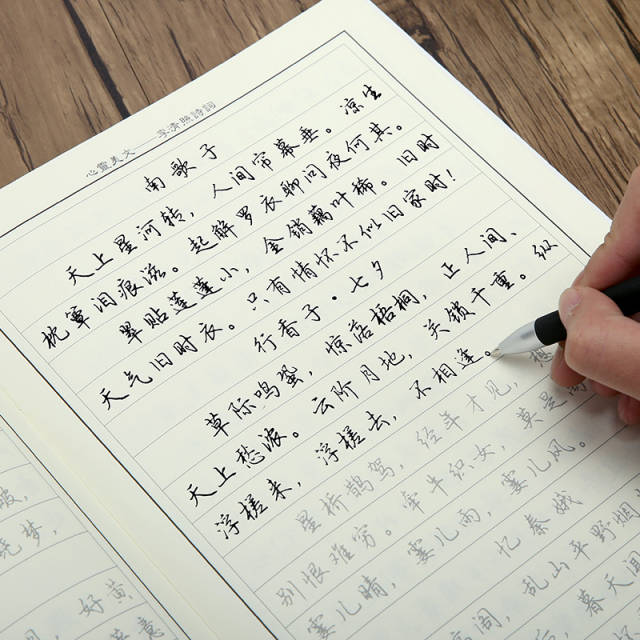 心靈美文 李清照詩詞
南歌子
天上星河转，人间帘幕垂。凉生
枕簟泪痕滋。起解罗衣聊问夜何其。
翠贴莲蓬小，金销藕叶稀。旧时
天气旧时衣。只有情怀不似旧家时！
行香子·七夕
草际鸣蛩，惊落梧桐，正人间、
天上愁浓。云阶月地，关锁千重。纵
浮槎来，浮槎去，不相逢。
星桥鹊驾，经年才见，想
别恨难穷。牵牛织女，莫是离
霎儿晴，霎儿雨，霎儿风。
忆秦娥
高阁，乱山平野烟
暮天闻
梦，
，好黄
意